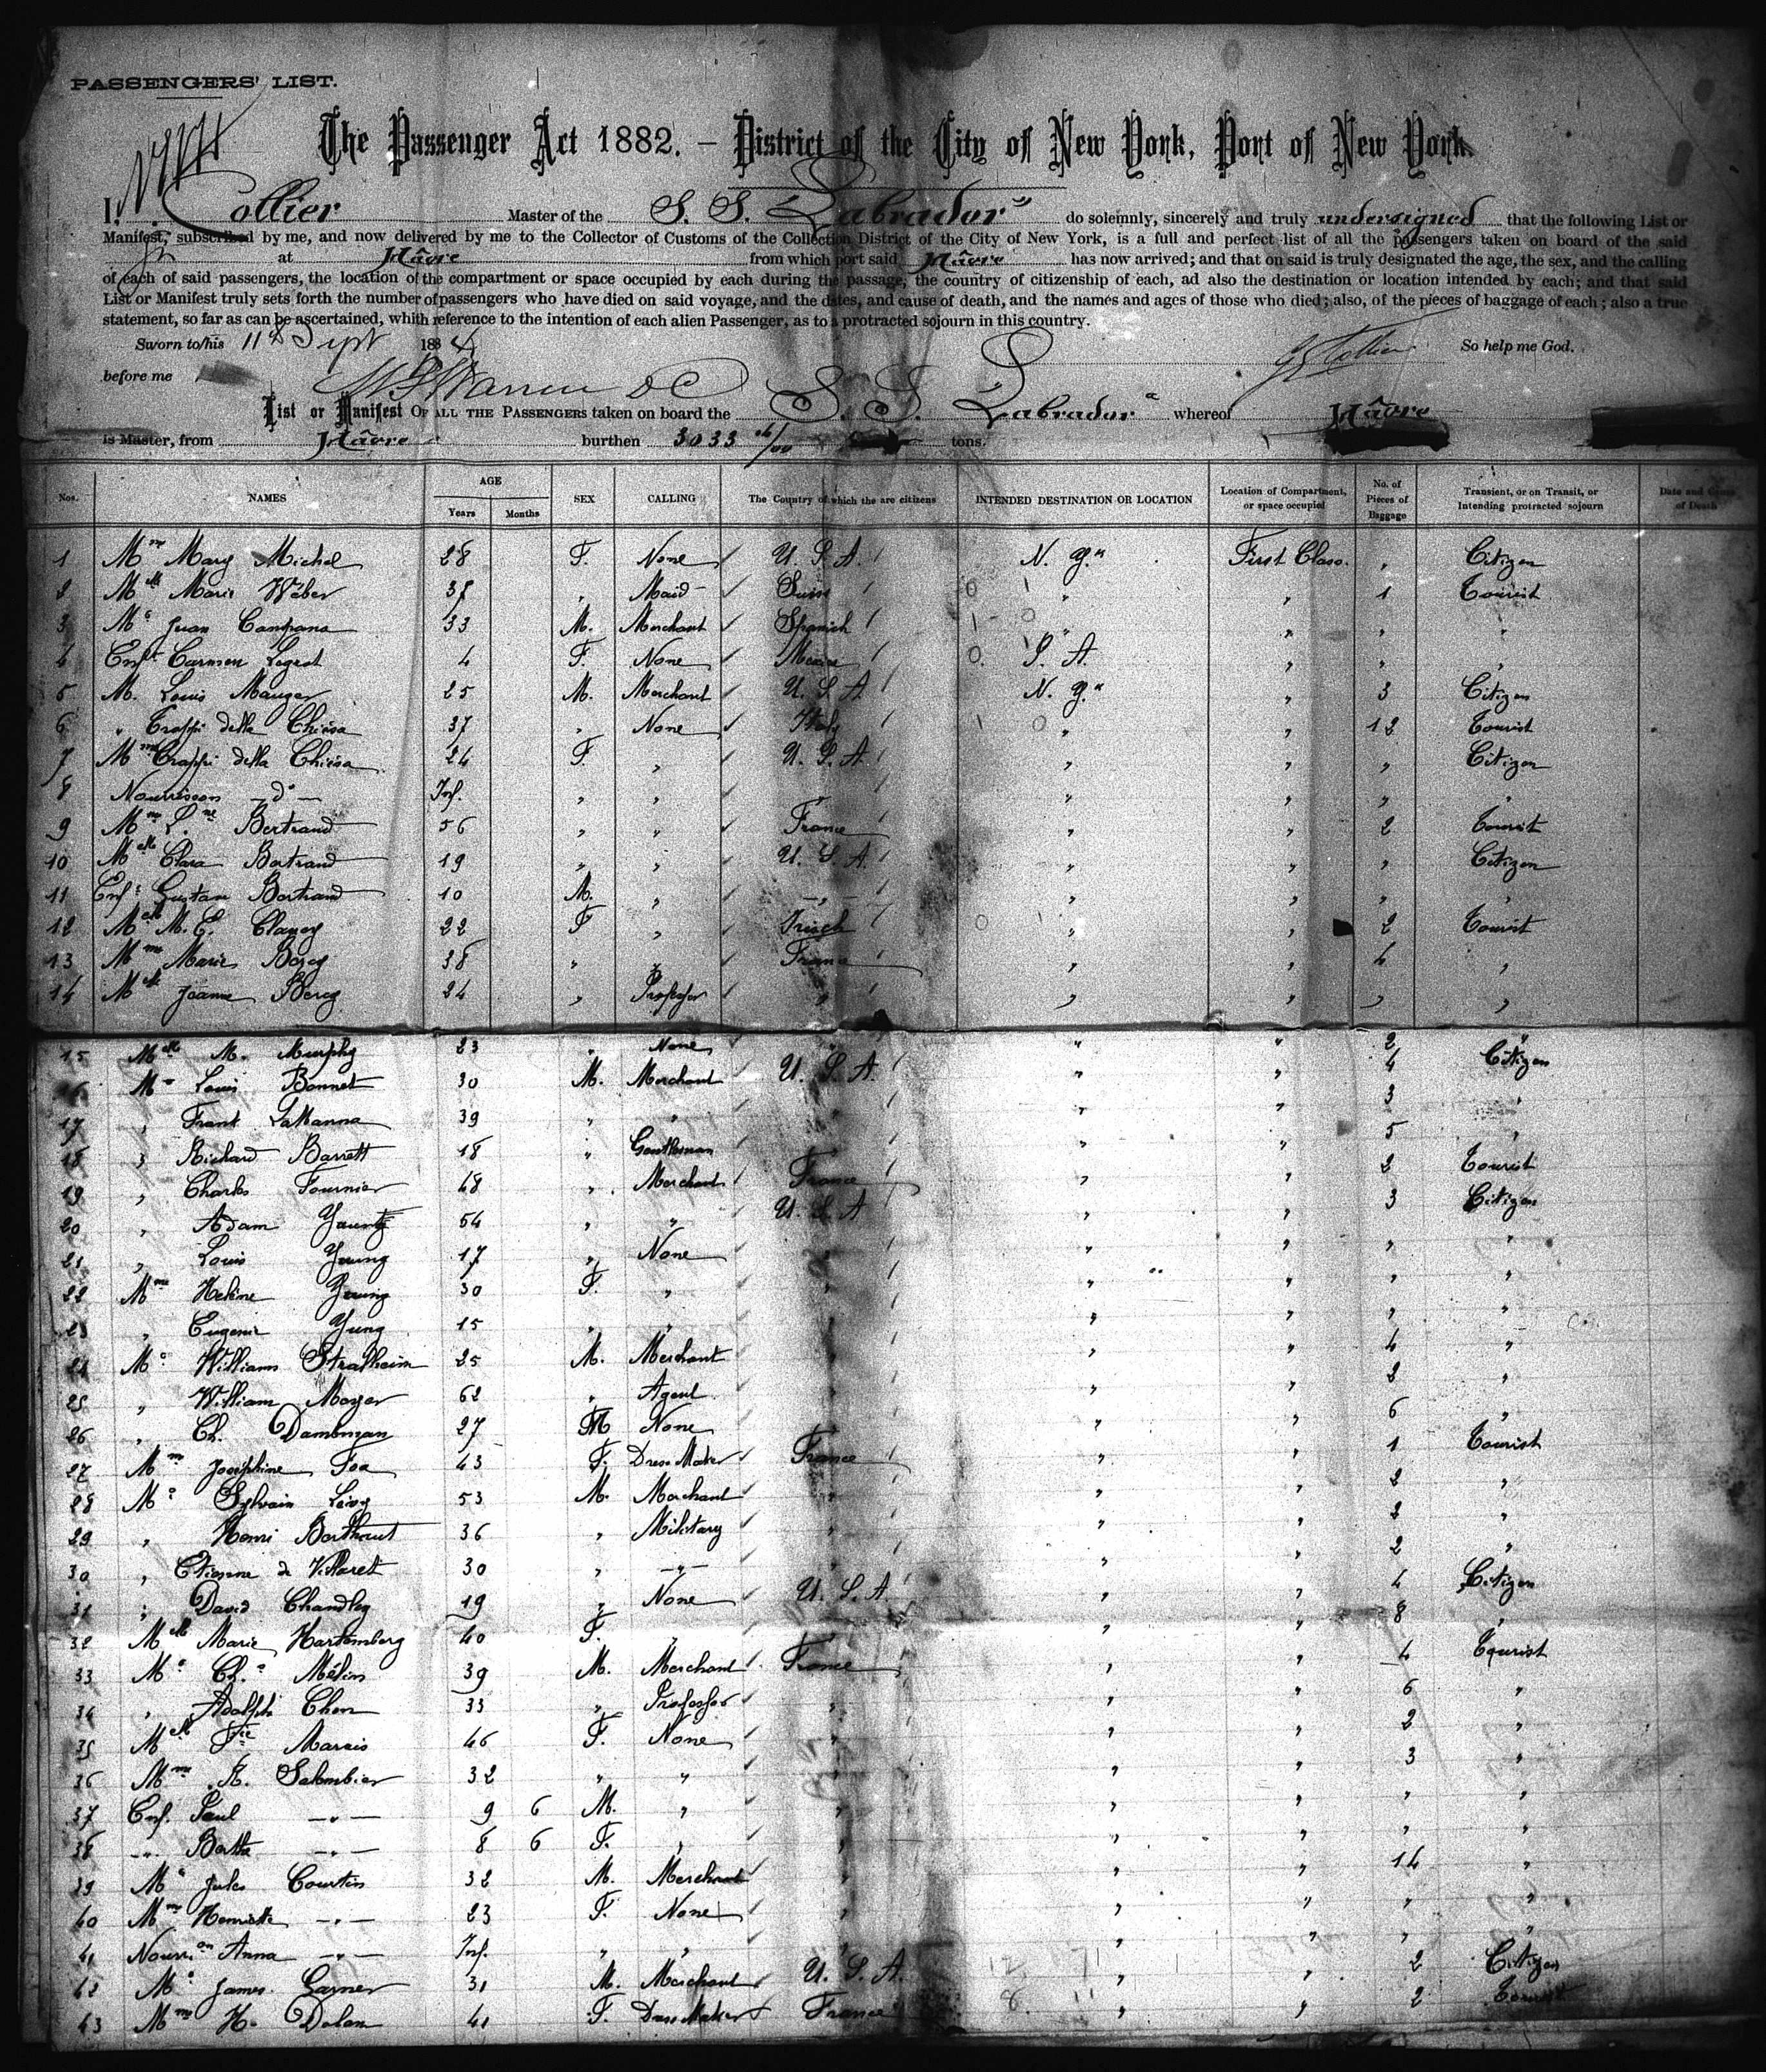 PASSENGERS' LIST.
The Passenger Act 1882. – District of the City of New York, Port of New York.
I, Collier Master of the S. S. "Labrador" do solemnly, sincerely and truly undersigned that the following List or
Manifest, subscribed by me, and now delivered by me to the Collector of Customs of the Collection District of the City of New York, is a full and perfect list of all the passengers taken on board of the said
at Hâvre from which port said Hâvre has now arrived; and that on said is truly designated the age, the sex, and the calling
of each of said passengers, the location of the compartment or space occupied by each during the passage, the country of citizenship of each, ad also the destination or location intended by each; and that said
List or Manifest truly sets forth the number of passengers who have died on said voyage, and the dates, and cause of death, and the names and ages of those who died; also, of the pieces of baggage of each; also a true
statement, so far as can be ascertained, whith reference to the intention of each alien Passenger, as to a protracted sojourn in this country.
Sworn to/his 11th Sept 1884 Collier So help me God.
before me Warren DC
List or Manifest OF ALL THE PASSENGERS taken on board the S. S. Labrador" whereof Hâvre
is Master, from Hâvre burthen 3033 tons.
Nos. NAMES AGE Years Months SEX CALLING The Country of which the are citizens INTENDED DESTINATION OR LOCATION Location of Compartment, or space occupied No. of Pieces of Baggage Transient, or on Transit, or Intending protracted sojourn Date and Cause of Death
1 Mme Mary Michel 28 F. None U. S. A. N. Y. First Class. " Citizen
2 Melle Marie Wéber 37 " Maid Suiss " " 1 Tourist
3 Mr Juan Campana 33 M. Merchant Spanish " " " "
4 Enft Carmen Legrot 4 F. None Mexico S. A. " " "
5 M. Louis Mauger 25 M. Merchant U. S. A. N. Y. " 3 Citizen
6 " Crappi della Chiésa 37 " None Italy " " 12 Tourist
7 Mme Crappi della Chiésa 24 F. " U. S. A. " " " Citizen
8 Nourrisson - do - Inf. " " " " " " "
9 Mme Bertrand 56 " " France " " 2 Tourist
10 Melle Clara Bertrand 19 " " U. S. A. " " " Citizen
11 Enft Gustave Bertrand 10 M. " " " " " "
12 Melle M. E. Clancy 22 F " Irish " " 2 Tourist
13 Mme Marie Bercy 38 " " France " " 4 "
14 Melle Jeanne Bercy 24 " Professor " " " " "
15 Melle M. Murphy 23 " None " " " 2 "
16 Mr Louis Bonnet 30 M. Merchant U. S. A. " " 4 Citizen
17 " Frank LaManna 39 " " " " 3 "
18 " Richard Barrett 18 " Gentleman " " 5 "
19 " Charles Fournier 48 " Merchant France " " 2 Tourist
20 " Adam 54 " " U. S. A " " 3 Citizen
21 " Louis Young 17 " None " " " "
22 Mme Helène Young 30 F. " " " " " "
23 " Eugenie Yung 15 " " " " " "
24 Mr Williams Stralheim 25 M. Merchant " " " 4 "
25 " William Mayer 62 " Agent " " 2 "
26 " Ch. Dambman 27 M None " " 6 "
27 Mme Josephine Foa 43 F. Dress Maker France " " 1 Tourist
28 Mr Sylvain Lévy 53 M. Merchant " " " 2 "
29 " Henri Berthaut 36 " Military " " " 2 "
30 " Etienne de Villaret 30 " -"- " " " 2 "
31 " David Chandley 19 " None U. S. A. " " 4 Citizen
32 Melle Marie Hartemberg 40 F. " " " 8 "
33 Mr Ch. Mélin 39 M. Merchant France " " 4 Tourist
34 " Adolphe 33 " Professor " " " 6 "
35 Melle Marais 46 F. None " " " 2 "
36 Mme Salembier 32 " " " " 3 "
37 Enf. Paul -"- 9 6 M. " " " " "
38 -"- Berthe -"- 8 6 F. " " " " "
39 Mr Jules Courtin 32 M. Merchant " " " 14 "
40 Mme Henriette -"- 23 F. None " " " " "
41 Nourron Anna -"- Inf. " " " " " " "
42 Mr James Garner 31 M. Merchant U. S. A. " " 2 Citizen
43 Mme H. Dolan 41 F. Dress Maker France " " 2 Tourist